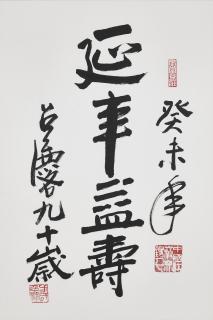 癸未年
延年益壽
九十歲